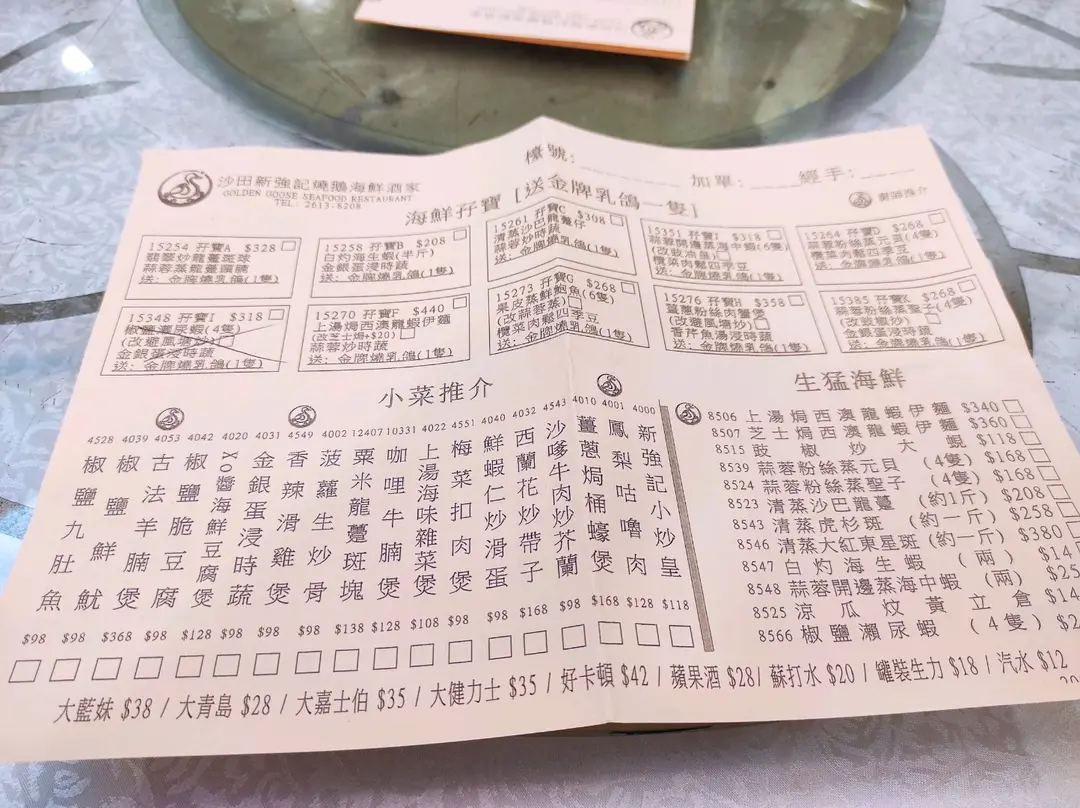 檯號:
加單:
經手:
沙田新強記燒鵝海鮮酒家
GOLDEN GOOSE SEAFOOD RESTAURANT
TEL: 2613-8208
海鮮孖寶 [送金牌乳鴿一隻]
15254 孖寶A $328
翡翠炒龍躉斑球
蒜蓉蒸龍躉頭腩
送: 金牌燒乳鴿(1隻)
15258 孖寶B $208
白灼海生蝦(半斤)
金銀蛋浸時蔬
送: 金牌燒乳鴿(1隻)
15261 孖寶C $308
清蒸沙巴龍躉仔
蒜蓉炒時蔬
送: 金牌燒乳鴿(1隻)
15351 孖寶J $318
蒜蓉開邊蒸海中蝦(6隻)
欖菜肉鬆四季豆
送: 金牌燒乳鴿(1隻)
15264 孖寶D $268
蒜蓉粉絲蒸元貝(4隻)
欖菜肉鬆四季豆
送: 金牌燒乳鴿(1隻)
15348 孖寶I $318
椒鹽瀨尿蝦(4隻)
(改避風塘炒)
金銀蛋浸時蔬
送: 金牌燒乳鴿(1隻)
15270 孖寶F $440
上湯焗西澳龍蝦伊麵
(改芝士焗+$20)
蒜蓉炒時蔬
送: 金牌燒乳鴿(1隻)
15273 孖寶G $268
果皮蒸鮮鮑魚(6隻)
(改蒜蓉蒸)
欖菜肉鬆四季豆
送: 金牌燒乳鴿(1隻)
15276 孖寶H $358
薑蔥粉絲肉蟹煲
(改避風塘炒)
香芹魚湯浸時蔬
送: 金牌燒乳鴿(1隻)
15385 孖寶K $268
蒜蓉粉絲蒸聖子(4隻)
金銀蛋浸時蔬
送: 金牌燒乳鴿(1隻)
小菜推介
4000 新強記小炒皇 $118
4001 鳳梨咕嚕肉 $128
4010 薑蔥焗桶蠔煲 $168
4543 沙嗲牛肉炒芥蘭 $98
4032 西蘭花炒帶子 $168
4040 鮮蝦仁炒滑蛋 $98
4551 梅菜扣肉煲 $98
4022 上湯海味雜菜煲 $108
10331 咖哩牛腩煲 $128
12407 粟米龍躉斑塊 $138
4002 菠蘿生炒骨 $98
4549 香辣滑雞煲 $98
4031 金銀蛋浸時蔬 $98
4020 XO醬海鮮豆腐煲 $128
4042 椒鹽脆豆腐 $98
4053 古法羊腩煲 $368
4039 椒鹽鮮魷 $98
4528 椒鹽九肚魚 $98
生猛海鮮
8506 上湯焗西澳龍蝦伊麵 $340
8507 芝士焗西澳龍蝦伊麵 $360
8515 豉椒炒大蜆 $118
8539 蒜蓉粉絲蒸元貝 (4隻) $168
8524 蒜蓉粉絲蒸聖子 (4隻) $168
8523 清蒸沙巴龍躉 (約1斤) $208
8543 清蒸虎杉斑 (約一斤) $258
8546 清蒸大紅東星斑 (約一斤) $380
8547 白灼海生蝦 (兩) $14
8548 蒜蓉開邊蒸海中蝦 (兩) $25
8525 涼瓜炆黃立倉 $14
8566 椒鹽瀨尿蝦 (4隻) $2
大藍妹 $38 / 大青島 $28 / 大嘉士伯 $35 / 大健力士 $35 / 好卡頓 $42 / 蘋果酒 $28/ 蘇打水 $20 / 罐裝生力 $18 / 汽水 $12